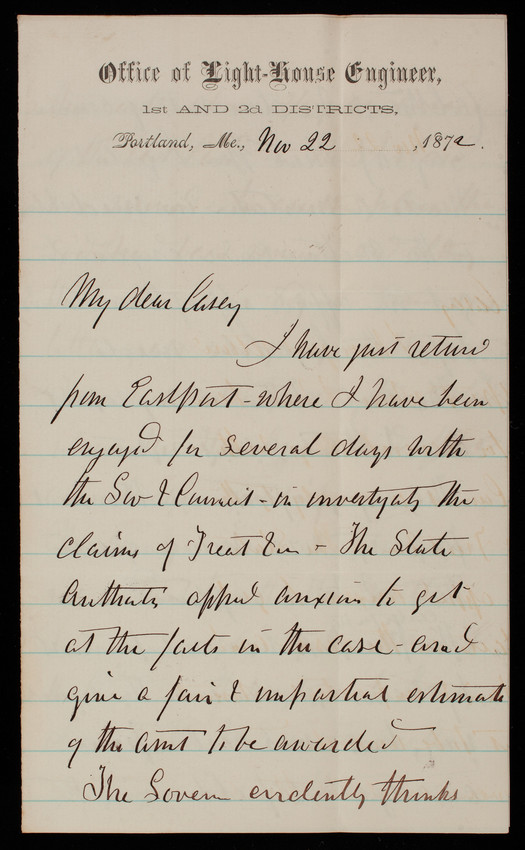 Office of Light-House Engineer,
1st AND 2d DISTRICTS,
Portland, Me., Nov 22, 1872.
My dear Casey
I have just returd
from Eastport - where I have been
engagd for several days with
the Gov & Council - in investigatg the
claims of Treat - The State
appd anxious to get
at the facts in the case - and
give a fair & impartial estimate
of the amt to be awarded
The Govern evidently thinks